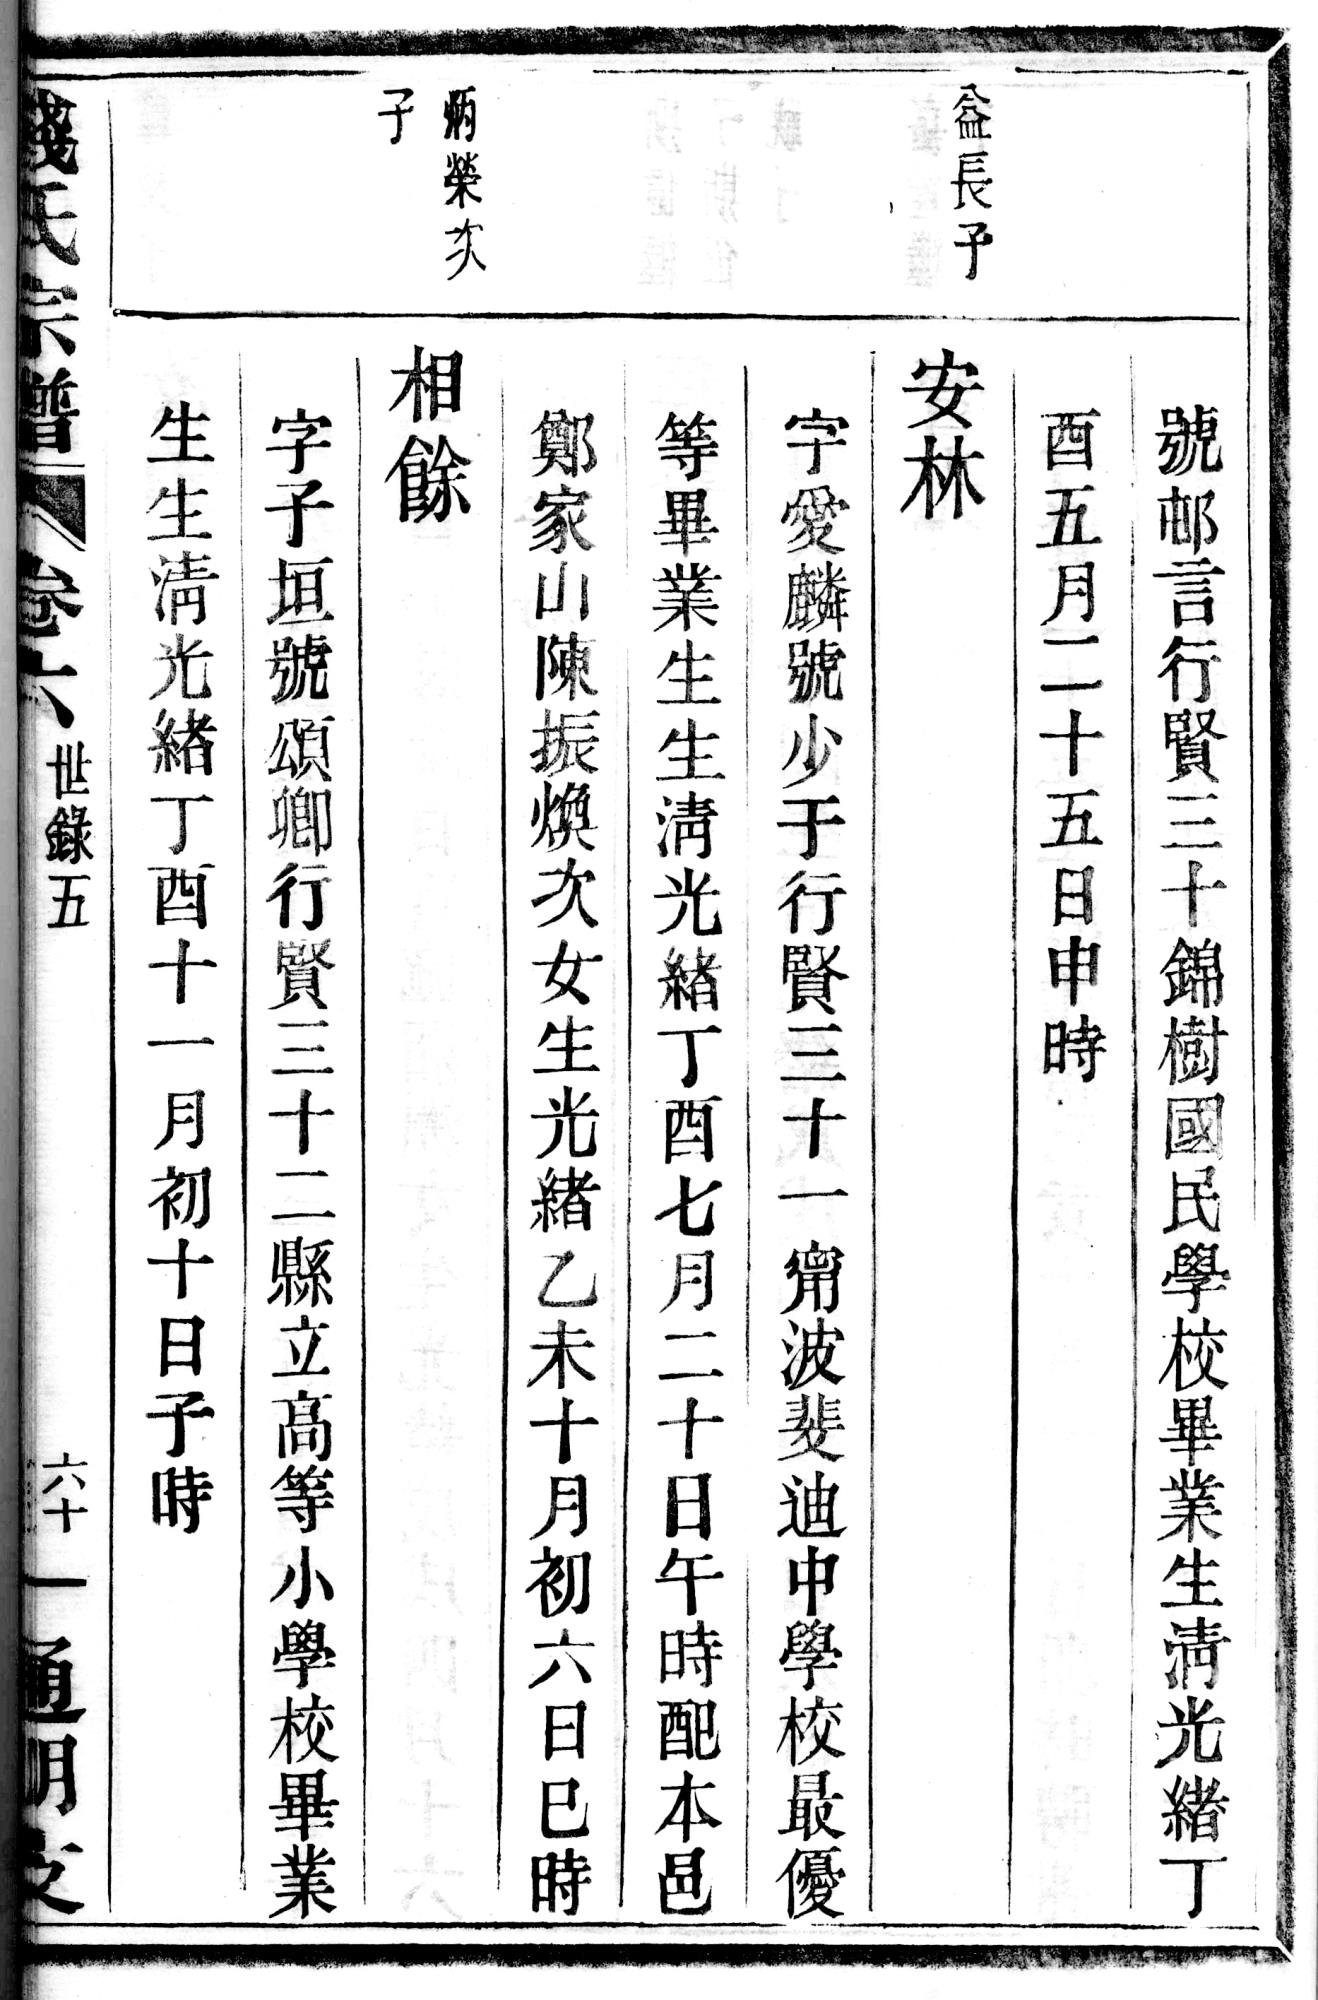 號邨言行賢三十錦樹國民學校畢業生淸光緒丁
酉五月二十五日申時
益長子
安林
字愛麟號少于行賢三十一甯波斐迪中學校最優
等畢業生生淸光緒丁酉七月二十日午時配本邑
鄭家山陳振煥次女生光緒乙未十月初六日巳時
炳榮次
子
相餘
字子垣號頌卿行賢三十二縣立高等小學校畢業
生生淸光緒丁酉十一月初十日子時
錢氏宗譜 卷六 世錄五 六十一 通明支